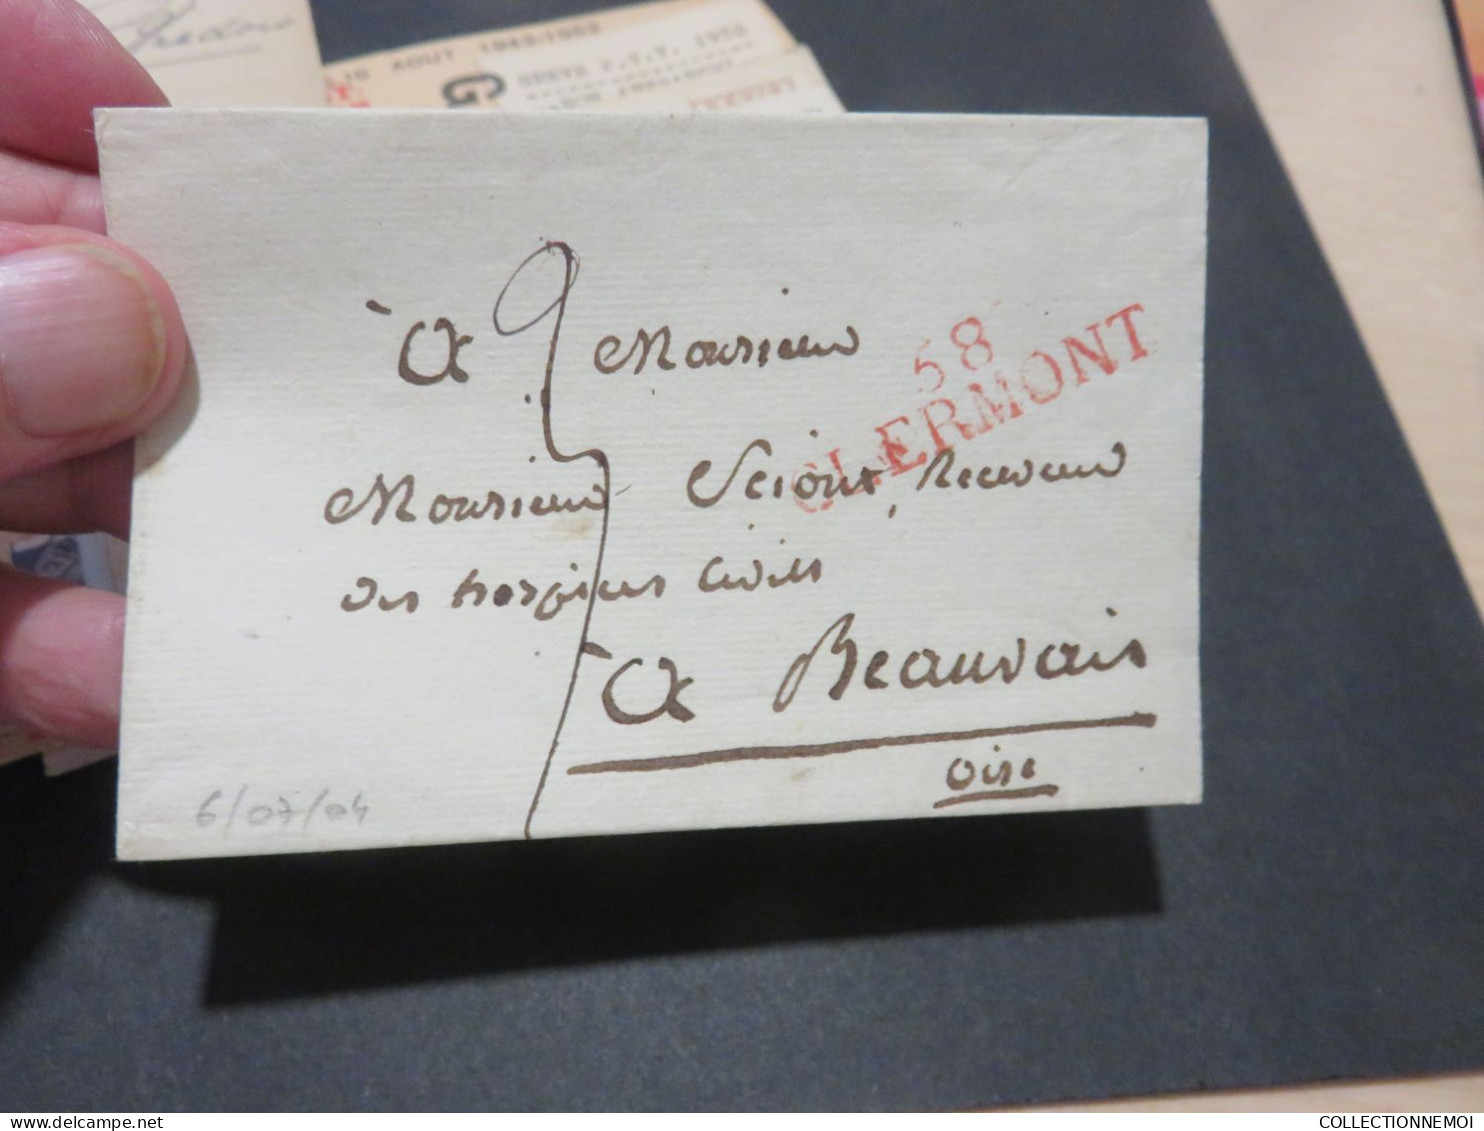 AOUT 1943-1983
G
58
CLERMONT
à Monsieur
Monsieur Scioux, Receveur
des hospices Civils
à Beauvais
oise
6/07/04
COLLECTIONNEMOI